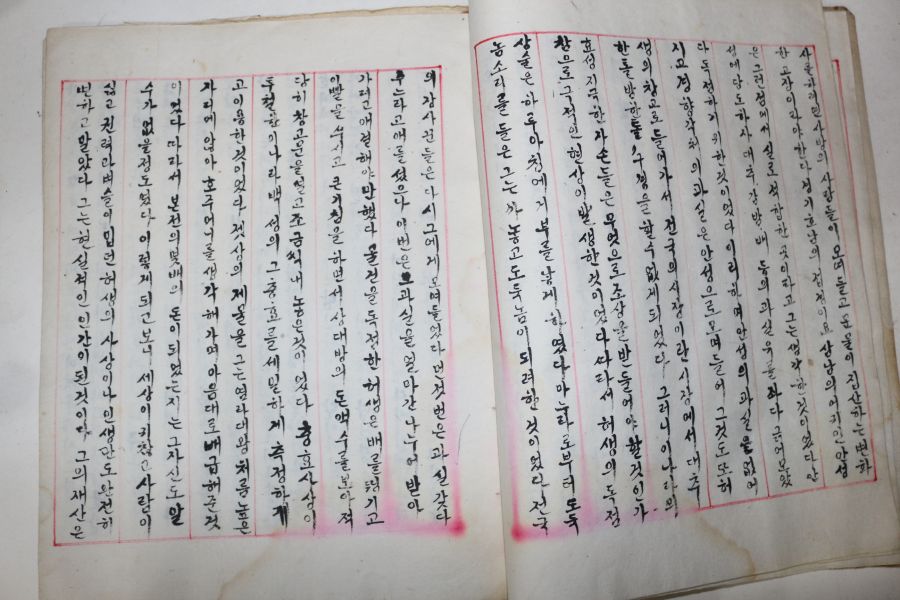 사를하러온사방의 사람들이 모여들고 물의 집산하는번화
한고장이라야한다 경기호남의 접경이요 삼남의어귀인안성
은 그런점에서 실로적합한곳이라고 그는생각한것이었다 안
성에당도하자 대추감밤배 등의과실을 긁어모았
다 독점하기 위한것이었다 이리하여안성의과실은없어
지고 경향각처의과실은안성으로모여들어 그것도또허
생의창고로들어가서 전국의 시장이란 시장에서 대추
한톨밤한톨 구경을할수없게되었다. 그러니이나라의
효성지극한자손들은 무엇으로조상을받들어야할것인가
참으로 현상이발생한것이었다 따라서 허생의 독점
상술은 하루아침에 거부를낳게하였다 마누라로부터 도둑
놈소리를들은 그는 까놓고도둑놈이되려한것이었다 전국
의 장사꾼들은다시그에게모여들었다 먼젓번은과실갖다
주느라고애를썼으나 이번은 그과실을얼마간나누어받아
가려고애걸해야만했다 물건을독점한허생은배를 기고
이빨을쑤시고 큰기침을하면서상대방의 돈액수를보아적
당히창고문을열고조금씩내놓은것이었다 충효사상이
투철한이나라백성의 그충효를세밀하게측정하게
고이용한것이었다. 젯상의제물을그는염라대왕처럼높은
자리에앉아호주머니를생각해가며마음대로배급해준것
이었다 따라서본전의몇배의 돈이되었는지는그자신도알
수가없을정도였다 이렇게되고보니 세상이귀찮고사람이
싫고권력과벼슬이밉던허생의사상이나인생관도완전히
변하고말았다 그는현실적인인간이된것이다. 그의재산은